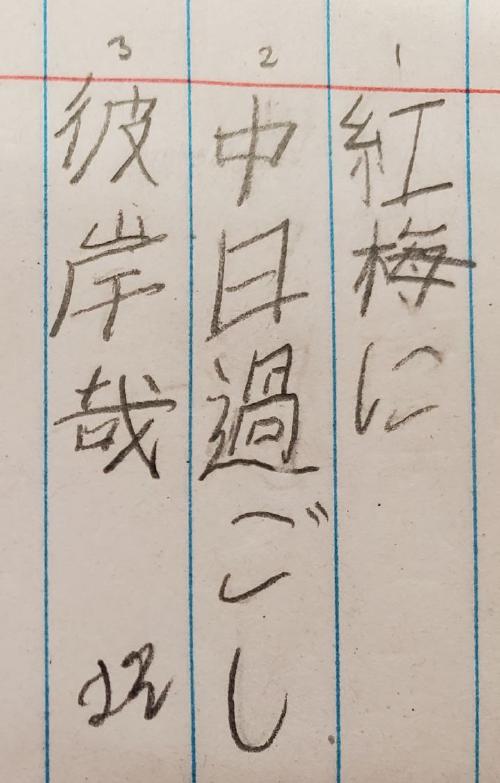 1
紅梅に
2
中日過ごし
3
彼岸哉